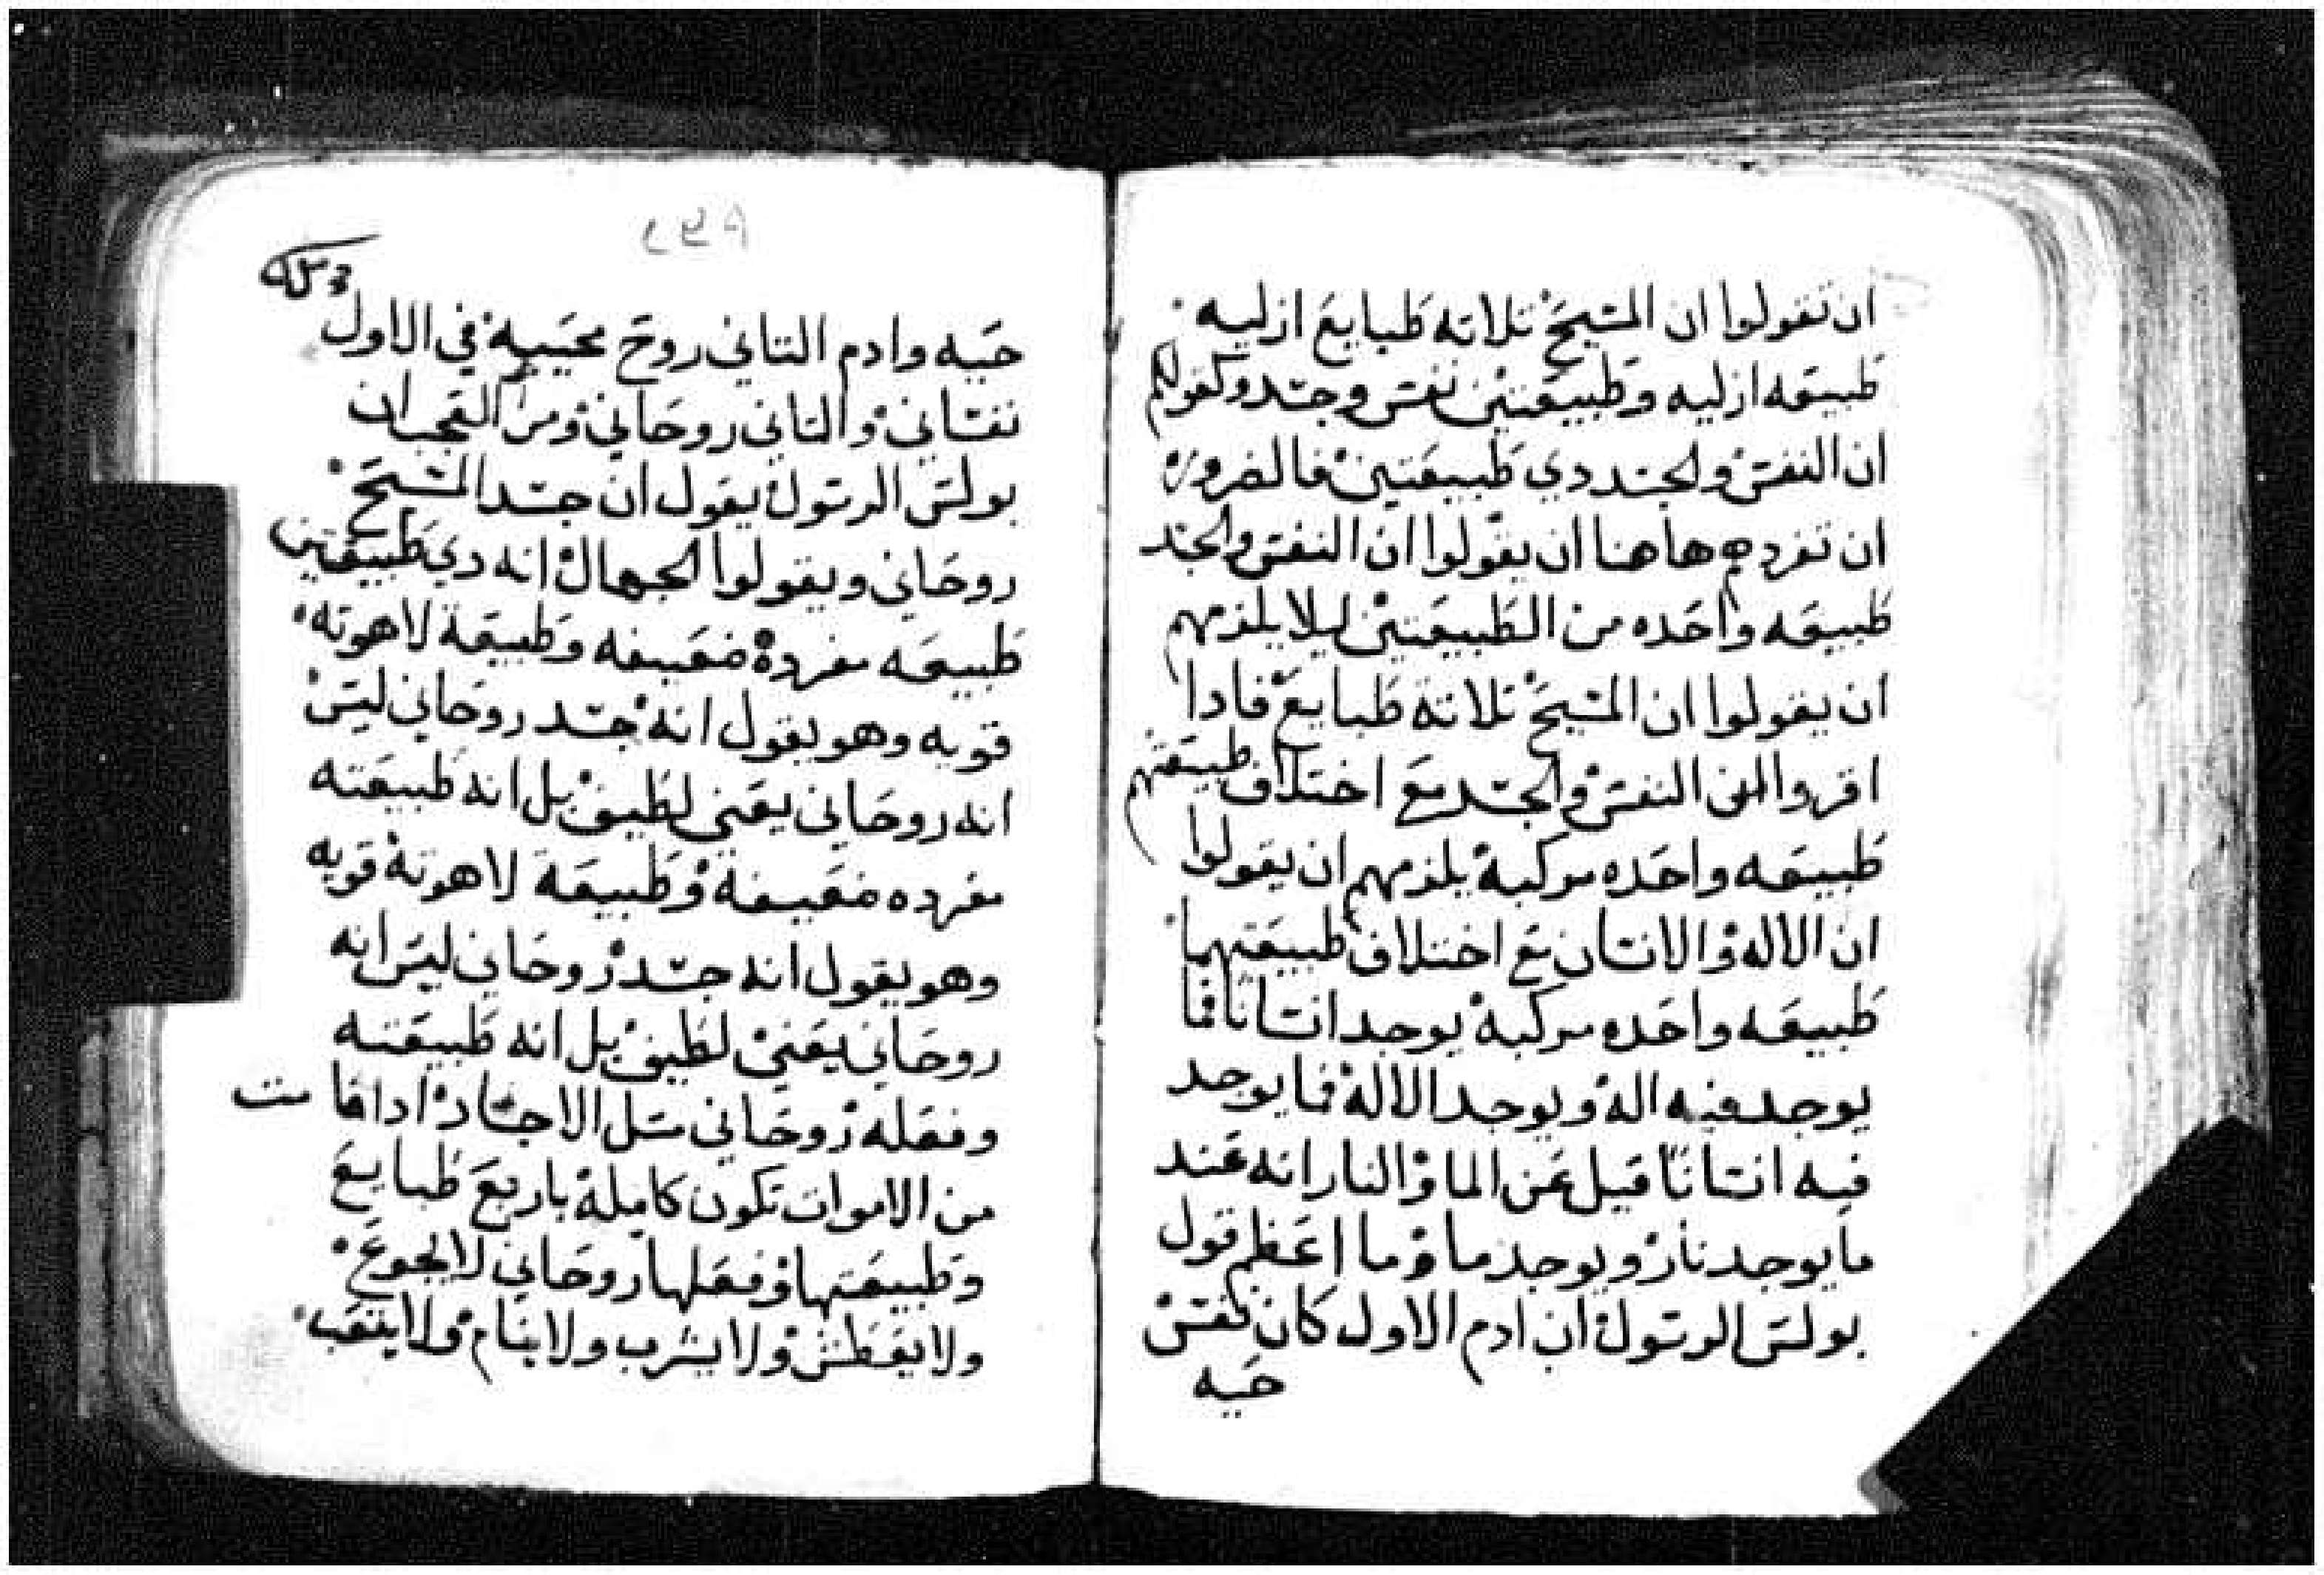 ان تقولوا ان المسيح تلاته طبايع ازليه
طبيعه ازليه وطبيعتين نفس وجسد وكقولكم
ان النفس والجسد دي طبيعتين فالضروره
ان تفردهم هاهنا ان يقولوا ان النفس والجسد
طبيعه واحده من الطبيعتين ليلا يلزمهم
ان يقولوا ان المسيح تلاتة طبايع فادا
اقروا النفس والجسد مع اختلاف طبيعتهم
طبيعه واحده مركبة يلزمهم ان يقولوا
ان الاله والانسان مع اختلاف طبيعتهما
طبيعه واحده مركبة يوجد انسانا فما
يوجد فيه اله ويوجد الاله فما يوجد
فيه انسانا قيل عن الما والنار انه عند
ما يوجد نار ويوجد ما وما اعظم قول
بولس الرسول ان ادم الاول كان نفس
حيه
٢٤٩
حيه وادم التاني روح محييه في الاول
نفساني والتاني روحاني ومن العجب ان
بولس الرسول يقول ان جسد المسيح
روحاني ويقولوا الجهال انه دي طبيعتين
طبيعه مفردة ضعيفه وطبيعة لاهوته
قويه وهو يقول انه جسد روحاني ليس
انه روحاني يعني لطيف بل انه طبيعته
مفرده ضعيفة وطبيعة لاهوتة قويه
وهو يقول انه جسد روحاني ليس انه
روحاني يعني لطيف بل انه طبيعته
وفعله روحاني متل الاجساد ادا قامت
من الاموات تكون كاملة باربع طبايع
وطبيعتها وفعلها روحاني لا يجوع
ولا يعطش ولا يشرب ولا ينام ولا يتعب